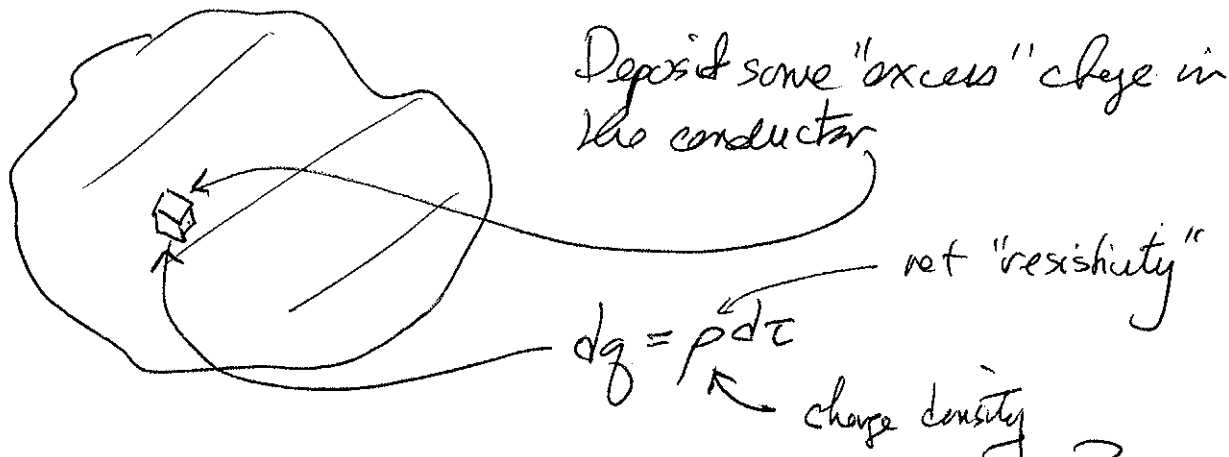 Deposit some "excess" charge in
the conductor
not "resistivity"
dq = ρdτ
charge density